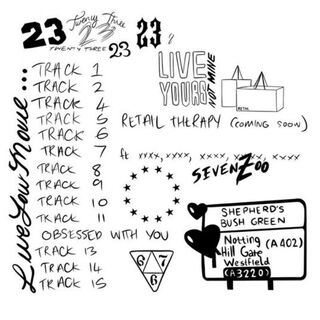 23
Twenty Three
23
TWENTY THREE
23
23
LIVE
YOURS
NOT MINE
RETAIL
TRACK 1
TRACK 2
TRACK 4
TRACK 5
TRACK 6
TRACK 7
TRACK 8
TRACK 9
TRACK 10
TRACK 11
OBSESSED WITH YOU
TRACK 13
TRACK 14
TRACK 15
RETAIL THERAPY (COMING SOON)
ft xxxx, xxxx, xxxx, xxxx, xxxx
SEVENZOO
SHEPHERD'S
BUSH GREEN
Notting (A402)
Hill Gate
Westfield
(A3220)